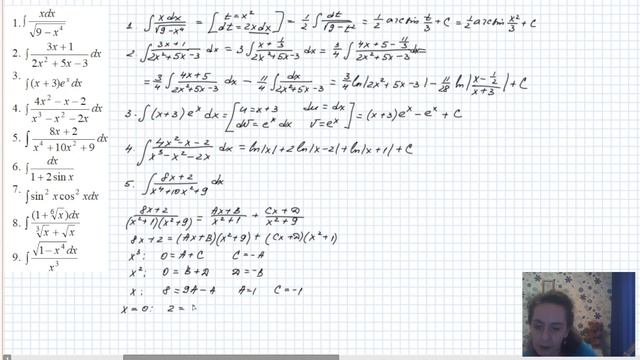 1. ∫ xdx / √(9 − x⁴)
2. ∫ (3x + 1) / (2x² + 5x − 3) dx
3. ∫ (x + 3) eˣ dx
4. ∫ (4x² − x − 2) / (x³ − x² − 2x) dx
5. ∫ (8x + 2) / (x⁴ + 10x² + 9) dx
6. ∫ dx / (1 + 2 sin x)
7. ∫ sin² x cos² xdx
8. ∫ (1 + ⁶√x)dx / (³√x + √x)
9. ∫ √(1 − x⁴) dx / x³
1. ∫ x dx / √(9 − x⁴) = [t = x² dt = 2x dx] = 1/2 ∫ dt / √(9 − t²) = 1/2 arcsin t/3 + C = 1/2 arcsin x²/3 + C
2. ∫ (3x + 1) / (2x² + 5x − 3) dx = 3 ∫ (x + 1/3) / (2x² + 5x − 3) dx = 3/4 ∫ (4x + 5 − 11/3) / (2x² + 5x − 3) dx =
= 3/4 ∫ (4x + 5) / (2x² + 5x − 3) dx − 11/4 ∫ dx / (2x² + 5x − 3) = 3/4 ln|2x² + 5x − 3| − 11/28 ln|(x − 1/2) / (x + 3)| + C
3. ∫ (x + 3) eˣ dx = [u = x + 3 du = dx dv = eˣ dx v = eˣ] = (x + 3) eˣ − eˣ + C
4. ∫ (4x² − x − 2) / (x³ − x² − 2x) dx = ln|x| + 2 ln|x − 2| + ln|x + 1| + C
5. ∫ (8x + 2) / (x⁴ + 10x² + 9) dx
(8x + 2) / ((x² + 1)(x² + 9)) = (Ax + B) / (x² + 1) + (Cx + D) / (x² + 9)
8x + 2 = (Ax + B)(x² + 9) + (Cx + D)(x² + 1)
x³: 0 = A + C C = −A
x²: 0 = B + D D = −B
x: 8 = 9A − A A = 1 C = −1
x = 0: 2 =